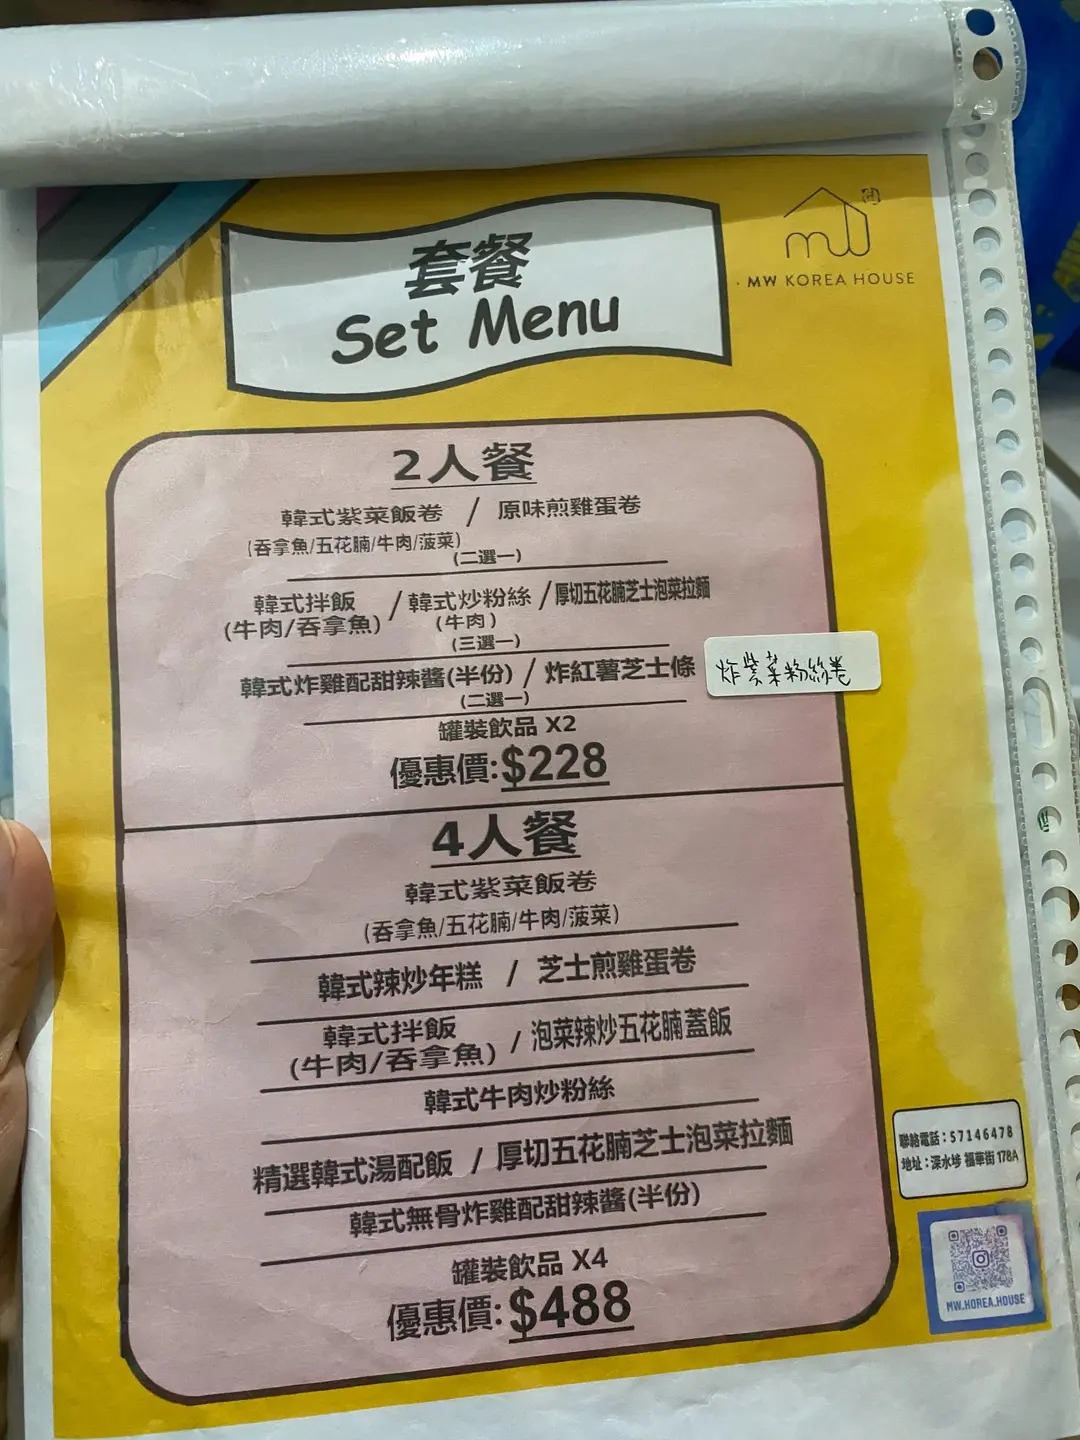 套餐
Set Menu
MW KOREA HOUSE
2人餐
韓式紫菜飯卷 / 原味煎雞蛋卷
(吞拿魚/五花腩/牛肉/菠菜)
(二選一)
韓式拌飯 / 韓式炒粉絲 / 厚切五花腩芝士泡菜拉麵
(牛肉/吞拿魚) (牛肉)
(三選一)
韓式炸雞配甜辣醬(半份) / 炸紅薯芝士條 炸紫菜粉絲卷
(二選一)
罐裝飲品 X2
優惠價:$228
4人餐
韓式紫菜飯卷
(吞拿魚/五花腩/牛肉/菠菜)
韓式辣炒年糕 / 芝士煎雞蛋卷
韓式拌飯 / 泡菜辣炒五花腩蓋飯
(牛肉/吞拿魚)
韓式牛肉炒粉絲
精選韓式湯配飯 / 厚切五花腩芝士泡菜拉麵
韓式無骨炸雞配甜辣醬(半份)
罐裝飲品 X4
優惠價:$488
聯絡電話:57146478
地址:深水埗 福華街 178A
MW.KOREA.HOUSE